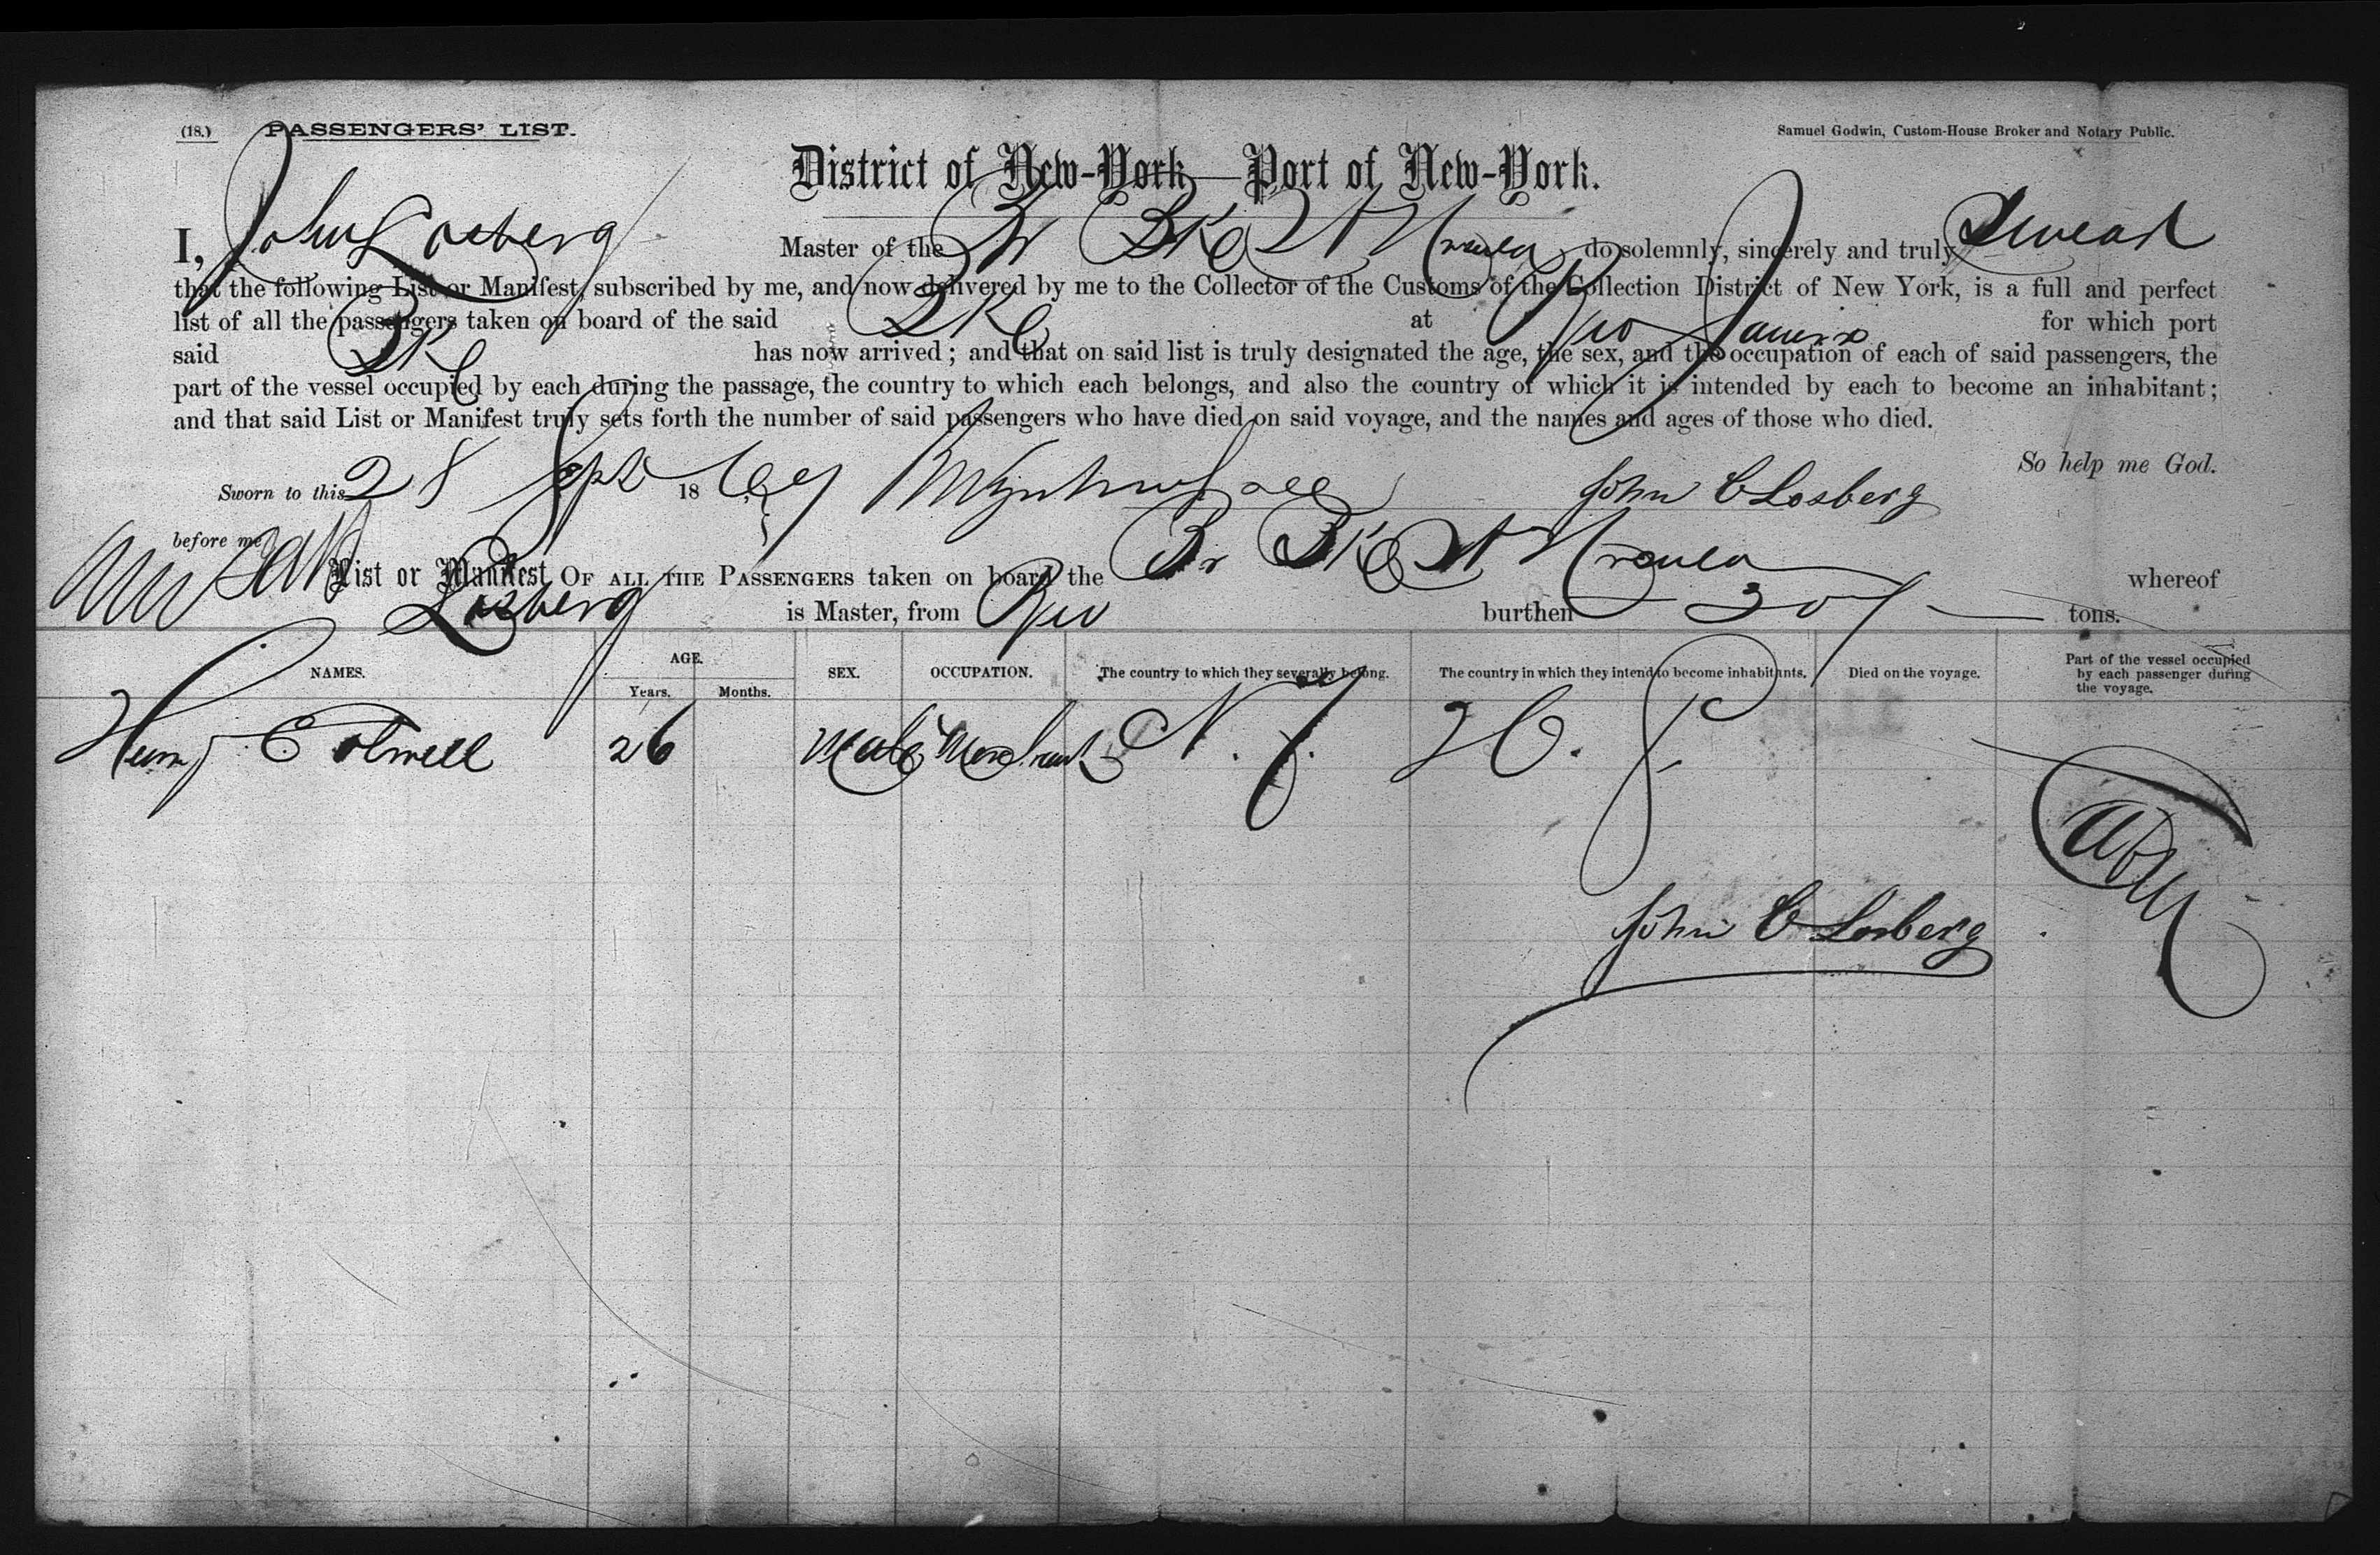 (18.) PASSENGERS' LIST.
Samuel Godwin, Custom-House Broker and Notary Public.
District of New-York—Port of New-York.
I, John Losberg Master of the Br Bke St Ursula do solemnly, sincerely and truly Swear
that the following List or Manifest, subscribed by me, and now delivered by me to the Collector of the Customs of the Collection District of New York, is a full and perfect
list of all the passengers taken on board of the said Bke at Rio Janeiro for which port
said Bke has now arrived; and that on said list is truly designated the age, the sex, and the occupation of each of said passengers, the
part of the vessel occupied by each during the passage, the country to which each belongs, and also the country of which it is intended by each to become an inhabitant;
and that said List or Manifest truly sets forth the number of said passengers who have died on said voyage, and the names and ages of those who died.
So help me God.
Sworn to this 28 Sept 1869 John C Losberg
before me
List or Manifest OF ALL THE PASSENGERS taken on board the Br Bke St Ursula whereof
Losberg is Master, from Rio burthen 307 tons.
NAMES. AGE. Years. Months. SEX. OCCUPATION. The country to which they severally belong. The country in which they intend to become inhabitants. Died on the voyage. Part of the vessel occupied by each passenger during the voyage.
Henry Colwell 26 Male Merchant N. J.
John C Losberg